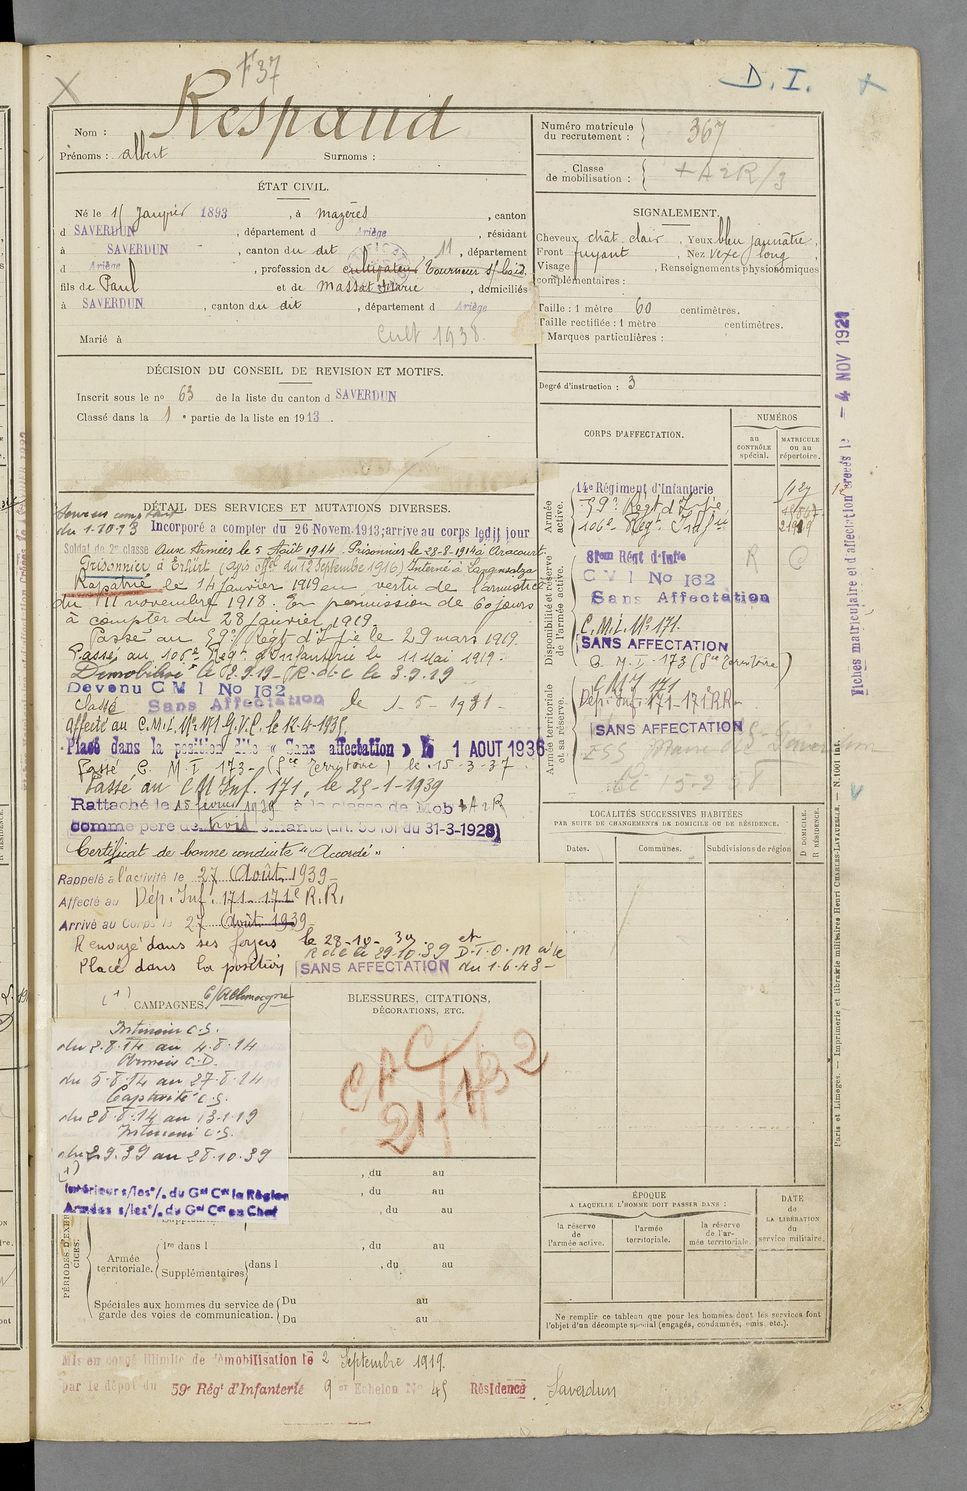 F 37
D. I.
Respaud
Nom :
Prénoms : albert Surnoms :
Numéro matricule
du recrutement : 367
Classe
de mobilisation : + A 2 R/3
ÉTAT CIVIL.
Né le 15 Janvier 1893, à mazères, canton
d SAVERDUN, département d Ariège, résidant
à SAVERDUN, canton du dit, département
d Ariège, profession de cultivateur Tourneur s/bois,
fils de Paul et de Massat Marie, domiciliés
à SAVERDUN, canton du dit, département d Ariège
Cult 1938.
Marié à
SIGNALEMENT.
Cheveux chât. clair. Yeux bleu jaunâtre,
Front fuyant, Nez vexe long,
Visage , Renseignements physionomiques
complémentaires :
Taille : 1 mètre 60 centimètres.
Taille rectifiée : 1 mètre centimètres.
Marques particulières :
Degré d'instruction : 3
DÉCISION DU CONSEIL DE REVISION ET MOTIFS.
Inscrit sous le no 63 de la liste du canton d SAVERDUN
Classé dans la 1e partie de la liste en 1913.
CORPS D'AFFECTATION.
NUMÉROS
au
CONTRÔLE
spécial.
MATRICULE
ou au
répertoire.
Armée
active.
14e Régiment d'Infanterie
59e Regt d'Infie
106e Regt Infie
Disponibilité et réserve
de l'armée active.
81em Régt d'Infie
C M I No 162
Sans Affectation
C.M.I. No 171.
SANS AFFECTATION
C. M. I. 173 (Sce Territoire)
Armée territoriale
et sa réserve.
C M I 171
Dép. Inf. 171 - 171e RR
SANS AFFECTATION
DÉTAIL DES SERVICES ET MUTATIONS DIVERSES.
du 1-10-13 Incorporé a compter du 26 Novem. 1913; arrive au corps ledit jour
Soldat de 2e classe Aux Armées le 5 Août 1914. Prisonnier le 28-8-1914 à Aracourt
Prisonnier à Erfurt (avis offel du 12 Septembre 1916) Interné à Langensalza
Rapatrié le 14 Janvier 1919 en vertu de l'armistice
du 11 novembre 1918. En permission de 60 jours
à compter du 28 Janvier 1919.
Passé au 59e Régt d'Infie le 29 mars 1919.
Passé au 106e Régt d'Infanterie le 11 Mai 1919.
Démobilisé le 2.9.19 - R.d.C le 3.9.19
Devenu C M I No 162
classé Sans Affectation le 1-5-1931
affecté au C.M.I. No 171 G.V.C. le 12-4-1935
Placé dans la position dite « Sans affectation » le 1 AOUT 1936
Passé C. M. I. 173 - (Sce Territoire) le 15-3-37
Passé au C M Inf. 171, le 25-1-1939
Rattaché le 15 février 1939 à la classe de Mob + A 2 R
comme père de trois enfants (art. 58 loi du 31-3-1928)
Certificat de bonne conduite "Accordé"
Rappelé à l'activité le 27 Août 1939
Affecté au Dép. Inf. 171 - 171e R.R.
Arrivé au Corps le 27 Août 1939
Renvoyé dans ses foyers le 28-10-39 et
R de C le 29.10.39 D.T.O.M
Placé dans la position SANS AFFECTATION du 1.6.43
LOCALITÉS SUCCESSIVES HABITÉES
PAR SUITE DE CHANGEMENTS DE DOMICILE OU DE RÉSIDENCE.
Dates. Communes. Subdivisions de région
D DOMICILE.
R RÉSIDENCE.
(1) CAMPAGNES. C/Allemagne
Intérieur C.S.
du 2.8.14 au 4.8.14
Armées C.D.
du 5.8.14 au 27.8.14
Captivité C.S.
du 28.8.14 au 13.1.19
Intérieur C.S.
du 2.9.39 au 28.10.39
(1)
Intérieur s/les %. du Gal Ct la Région
Armées s/les %. du Gal Ct en Chef
BLESSURES, CITATIONS,
DÉCORATIONS, ETC.
CAC
, du au
, du au
, du au
PÉRIODES D'EXERCICES.
Armée
territoriale.
1re dans l , du au
Supplémentaires dans l , du au
Spéciales aux hommes du service de
garde des voies de communication.
Du au
Du au
ÉPOQUE
A LAQUELLE L'HOMME DOIT PASSER DANS :
la réserve
de
l'armée active.
l'armée
territoriale.
la réserve
de l'armée territoriale.
DATE
de
LA LIBÉRATION
du
service militaire.
Ne remplir ce tableau que pour les hommes dont les services font
l'objet d'un décompte spécial (engagés, condamnés, omis, etc.).
Mis en congé illimité de démobilisation le 2 Septembre 1919.
par le dépôt du 59e Régt d'Infanterie 9 er Echelon No 45 Résidence, Saverdun
Fiches matriculaire et d'affectation créées le - 4 NOV 1921
Paris et Limoges. — Imprimerie et librairie militaires Henri CHARLES-LAVAUZELLE. — N. 1001 int.